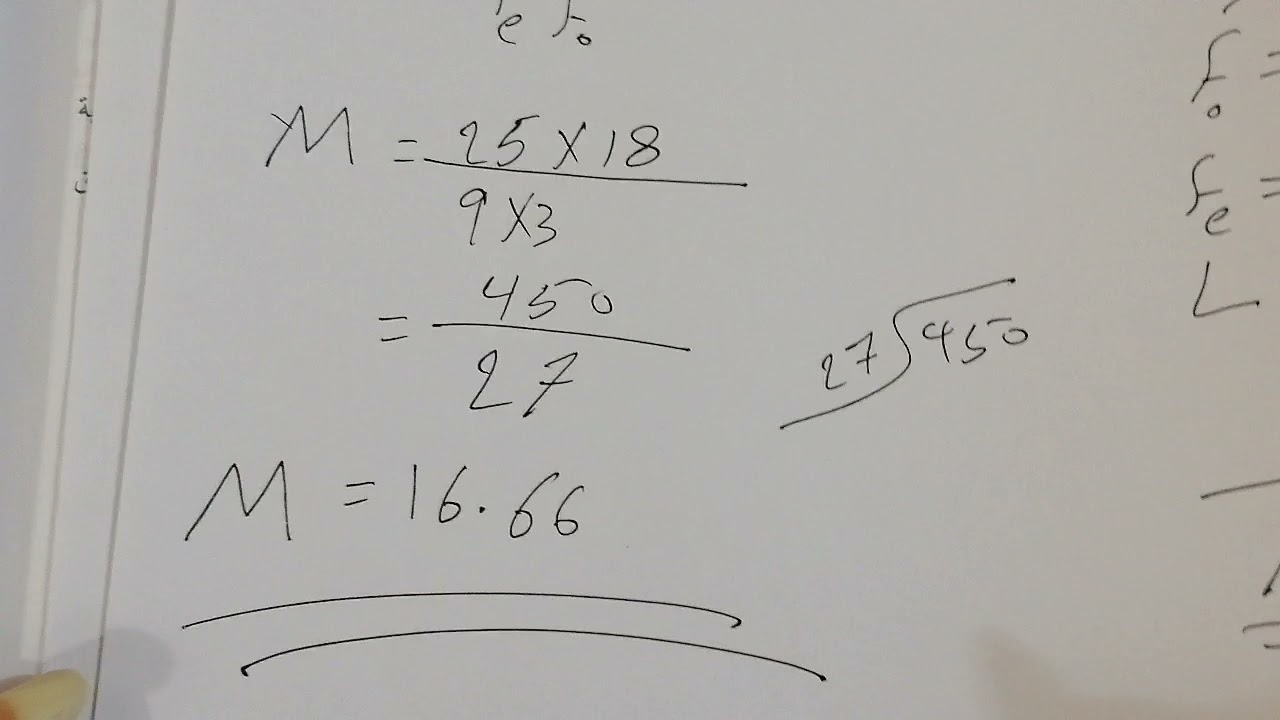 e fo
M = 25 × 18
9 × 3
= 450
27
27 √450
M = 16.66
fo =
fe =
L